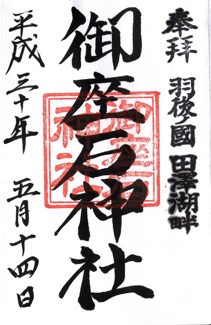 奉拝 羽後國 田澤湖畔
御座石神社
御座石神社
平成三十年 五月十四日